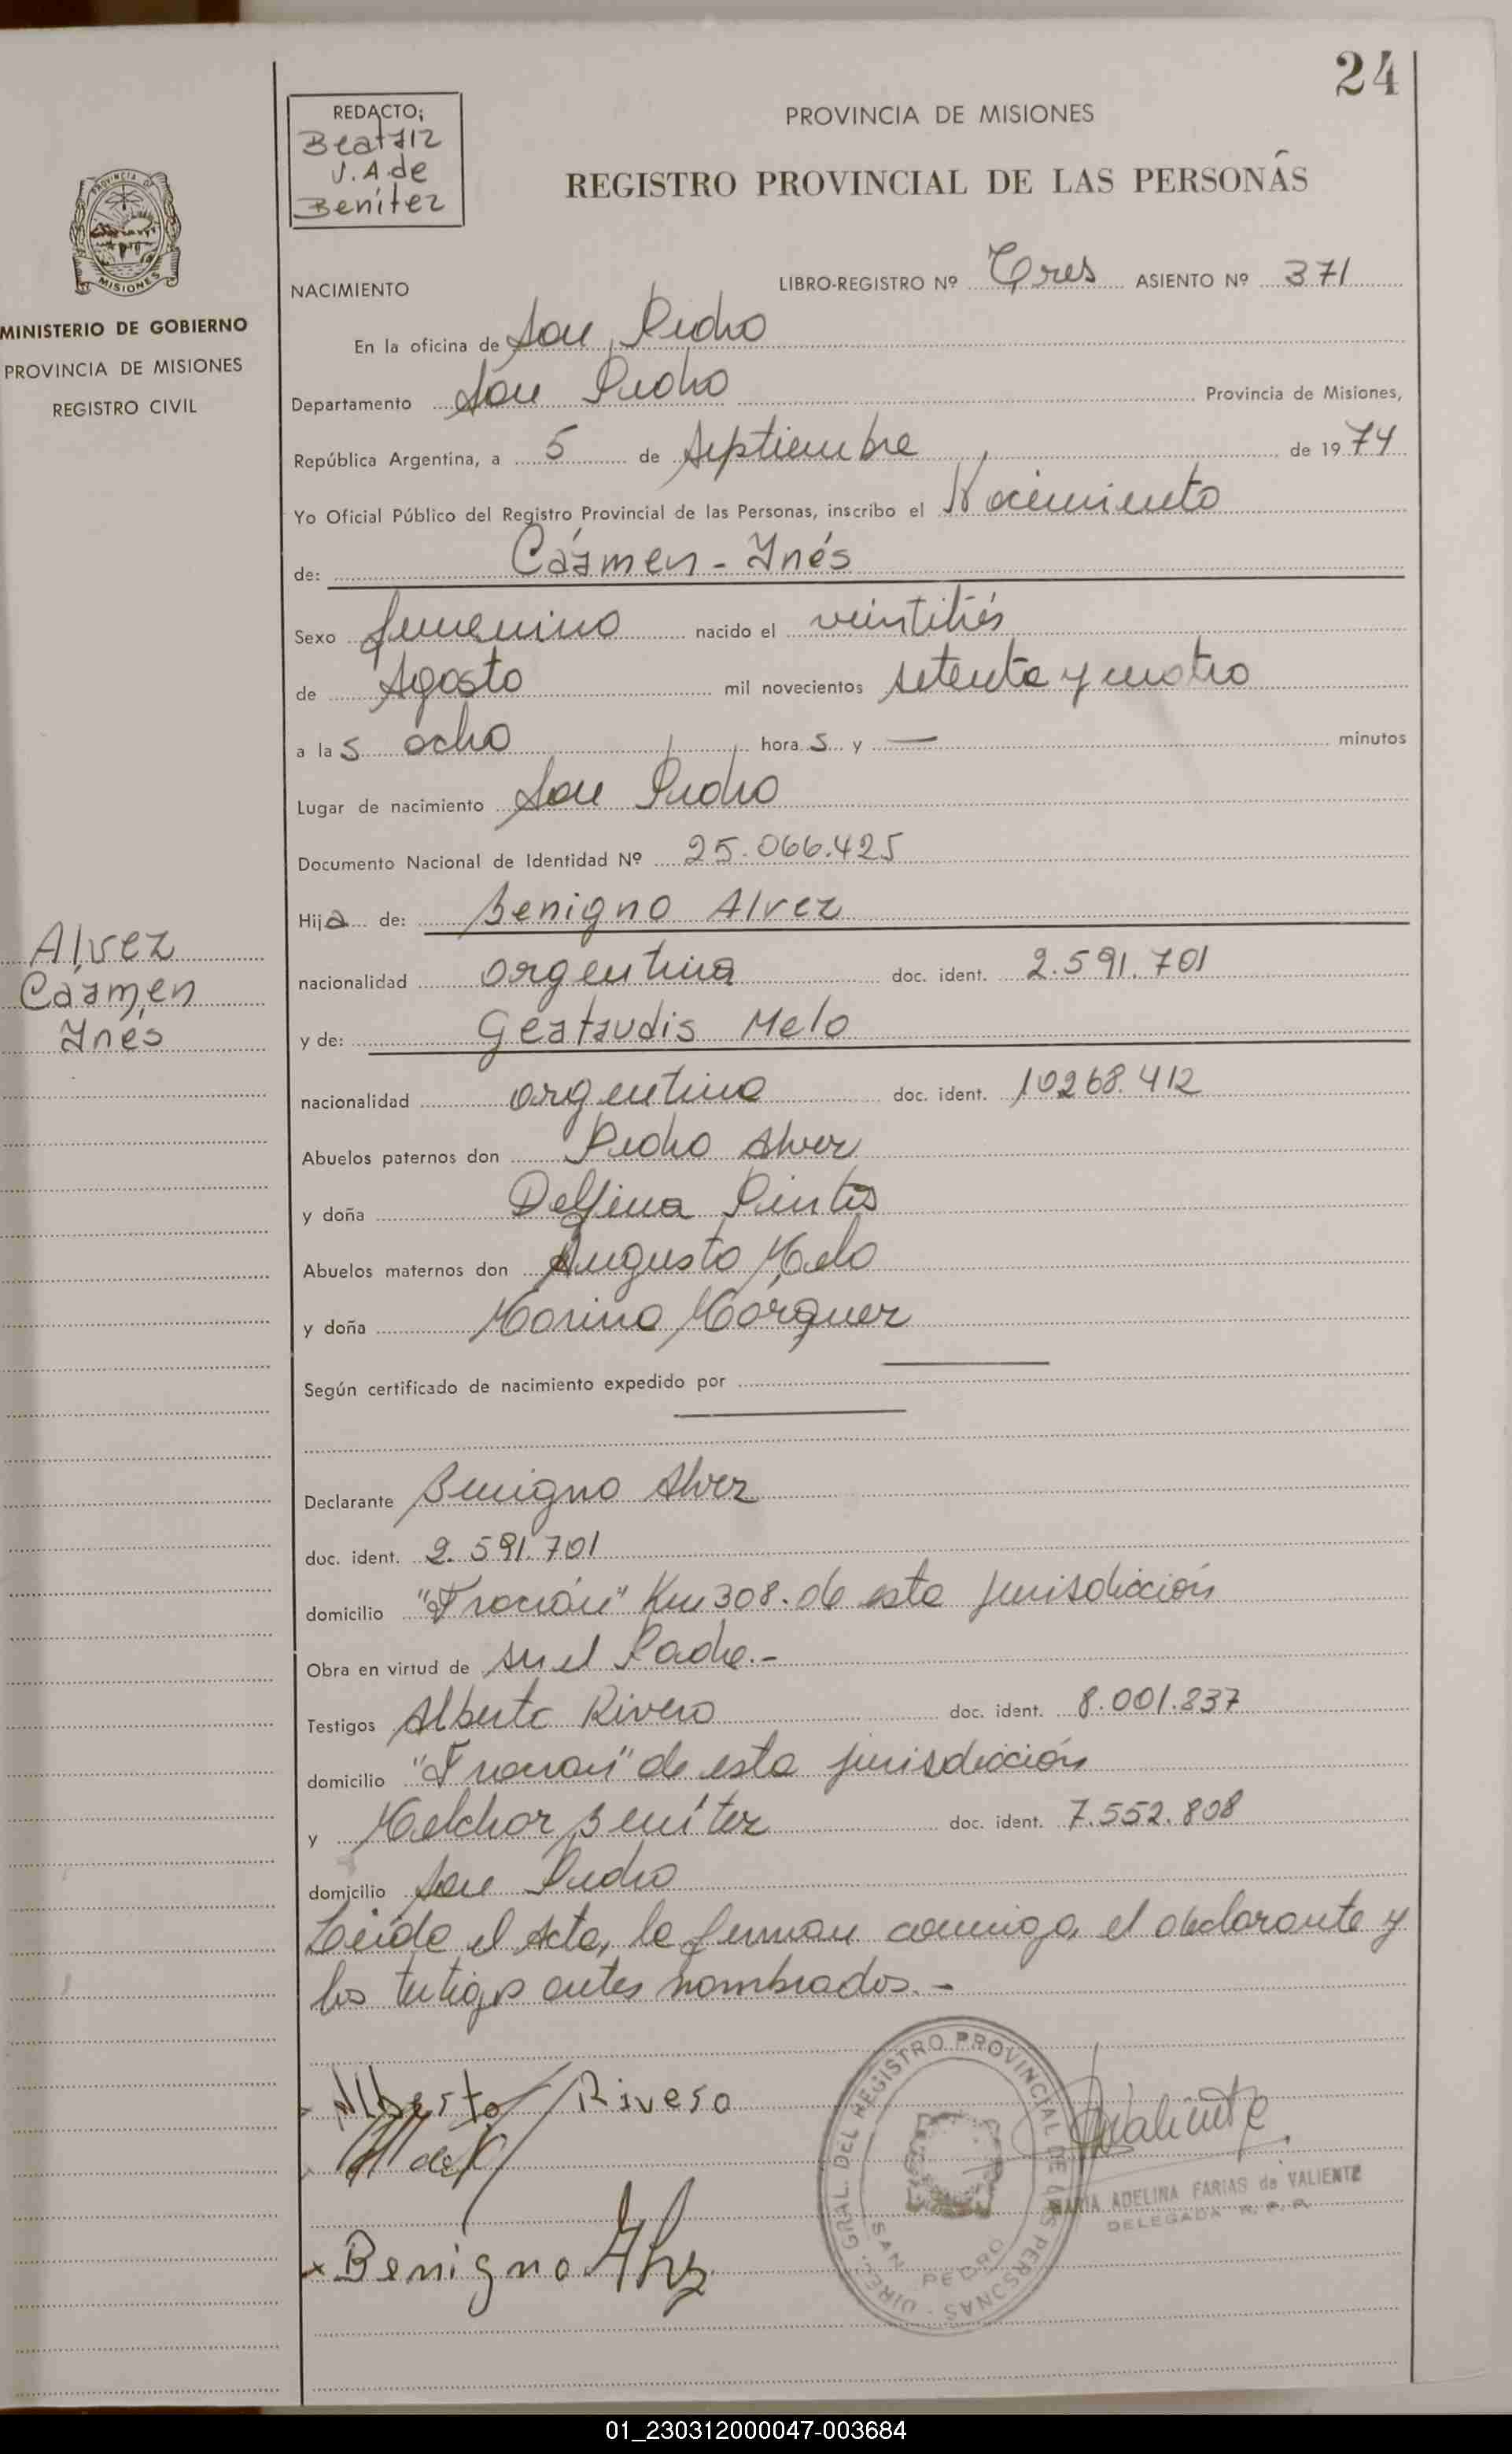 24
REDACTO;
Beatriz
V. A de
Benítez
PROVINCIA DE MISIONES
REGISTRO PROVINCIAL DE LAS PERSONAS
PROVINCIA DE
MISIONES
MINISTERIO DE GOBIERNO
PROVINCIA DE MISIONES
REGISTRO CIVIL
NACIMIENTO LIBRO-REGISTRO Nº Tres ASIENTO Nº 371
En la oficina de San Pedro
Departamento San Pedro Provincia de Misiones,
República Argentina, a 5 de Septiembre de 1974
Yo Oficial Público del Registro Provincial de las Personas, inscribo el Nacimiento
de: Cármen - Inés
Sexo femenino nacido el veintitrés
de Agosto mil novecientos setenta y cuatro
a las ocho horas y — minutos
Lugar de nacimiento San Pedro
Documento Nacional de Identidad Nº 25.066.425
Hija de: Benigno Alvez
Alvez
Cármen
Inés
nacionalidad argentina doc. ident. 2.591.701
y de: Geartrudis Melo
nacionalidad argentina doc. ident. 10268.412
Abuelos paternos don Pedro Alvez
y doña Delfina Pinto
Abuelos maternos don Augusto Melo
y doña Marina Márquez
Según certificado de nacimiento expedido por —
—
Declarante Benigno Alvez
doc. ident. 2.591.701
domicilio "Fracrán" Km 308. de esta jurisdicción
Obra en virtud de ser el Padre.-
Testigos Alberto Rivero doc. ident. 8.001.837
domicilio "Fracran" de esta jurisdicción
y Melchor Benítez doc. ident. 7.552.808
domicilio San Pedro
Leída el Acta, la firman conmigo, el declarante y
los testigos antes nombrados.-
Alberto Rivero
Benigno Alvez
Valiente
MARIA ADELINA FARIAS de VALIENTE
DELEGADA R. P. P.
DIREC. GRAL. DEL REGISTRO PROVINCIAL DE LAS PERSONAS
SAN PEDRO
01_230312000047-003684